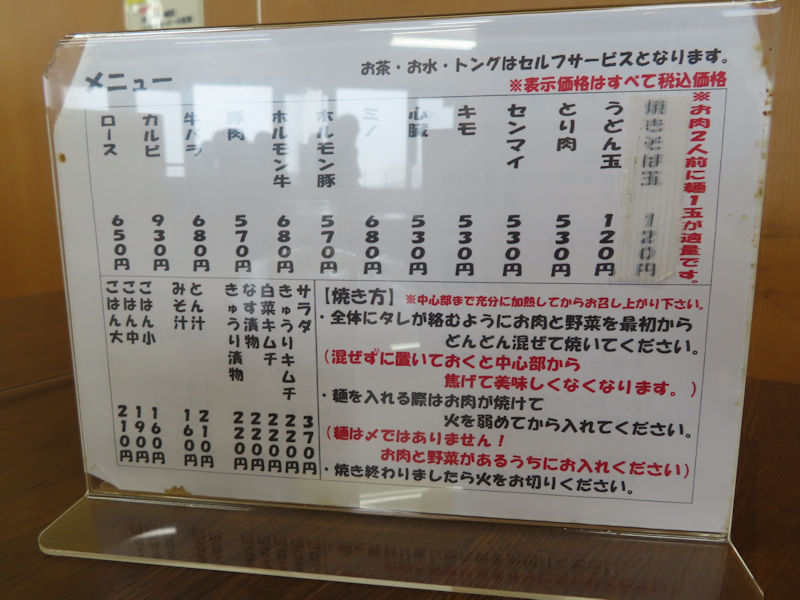 メニュー
お茶・お水・トングはセルフサービスとなります。
※表示価格はすべて税込価格
※お肉2人前に麺1玉が適量です。
焼きそば玉 120円
うどん玉 120円
とり肉 530円
センマイ 530円
キモ 530円
心臓 530円
ミノ 680円
ホルモン豚 570円
ホルモン牛 680円
豚肉 570円
牛バラ 680円
カルビ 930円
ロース 650円
【焼き方】※中心部まで充分に加熱してからお召し上がり下さい。
・全体にタレが絡むようにお肉と野菜を最初から
どんどん混ぜて焼いてください。
(混ぜずに置いておくと中心部から
焦げて美味しくなくなります。)
・麺を入れる際はお肉が焼けて
火を弱めてから入れてください。
(麺は〆ではありません!
お肉と野菜があるうちにお入れください)
・焼き終わりましたら火をお切りください。
サラダ 370円
きゅうりキムチ 220円
白菜キムチ 220円
なす漬物 220円
きゅうり漬物 220円
とん汁 210円
みそ汁 160円
ごはん小 160円
ごはん中 190円
ごはん大 210円